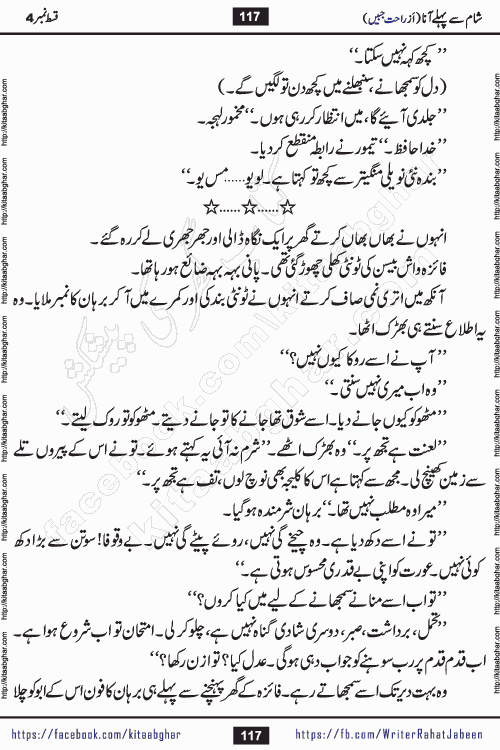 شام سے پہلے آنا (از راحت جبیں)
117
قسط نمبر 4
’’کچھ کہہ نہیں سکتا۔‘‘
(دل کو سمجھانے، سنبھلنے میں کچھ دن تو لگیں گے۔)
’’جلدی آیئے گا، میں انتظار کر رہی ہوں۔‘‘ مخمور لہجہ۔
’’خدا حافظ۔‘‘ تیمور نے رابطہ منقطع کر دیا۔
’’بندہ نئی نویلی منگیتر سے کچھ تو کہتا ہے۔ لو یو...... مس یو۔‘‘
☆......☆......☆
انہوں نے بھاں بھاں کرتے گھر پر ایک نگاہ ڈالی اور جھرجھری لے کر رہ گئے۔
فائزہ واش بیسن کی ٹونٹی کھلی چھوڑ گئی تھی۔ پانی بہہ بہہ ضائع ہو رہا تھا۔
آنکھ میں اتری نمی صاف کرتے انہوں نے ٹونٹی بند کی اور کمرے میں آ کر برہان کا نمبر ملایا۔ وہ
یہ اطلاع سنتے ہی بھڑک اٹھا۔
’’آپ نے اسے روکا کیوں نہیں؟‘‘
’’وہ اب میری نہیں سنتی۔‘‘
’’مٹھو کو کیوں جانے دیا۔ اسے شوق تھا جانے کا تو جانے دیتے۔ مٹھو کو تو روک لیتے۔‘‘
’’لعنت ہے تجھ پر۔‘‘ وہ بھڑک اٹھے۔ ’’شرم نہ آئی یہ کہتے ہوئے۔ تو نے اس کے پیروں تلے
سے زمین کھینچ لی۔ مجھ سے کہتا ہے اس کا کلیجہ بھی نوچ لوں، تف ہے تجھ پر۔‘‘
’’میرا وہ مطلب نہیں تھا۔‘‘ برہان شرمندہ ہو گیا۔
’’تو نے اسے دکھ دیا ہے۔ وہ چیخے گی نہیں، روئے پیٹے گی نہیں۔ بے وقوفا! سوتن سے بڑا دکھ
کوئی نہیں۔ عورت کو اپنی بے قدری محسوس ہوتی ہے۔‘‘
’’تو اب اسے منانے سمجھانے کے لیے میں کیا کروں؟‘‘
’’تحمل، برداشت، صبر، دوسری شادی گناہ نہیں ہے، چلو کر لی۔ امتحان تو اب شروع ہوا ہے۔
اب قدم قدم پر رب سوہنے کو جواب دہی ہو گی۔ عدل کیا؟ توازن رکھا؟‘‘
وہ بہت دیر تک اسے سمجھاتے رہے۔ فائزہ کے گھر پہنچنے سے پہلے ہی برہان کا فون اس کے ابو کو چلا
https://facebook.com/kitaabghar
117
https://fb.com/WriterRahatJabeen
http://kitaabghar.com